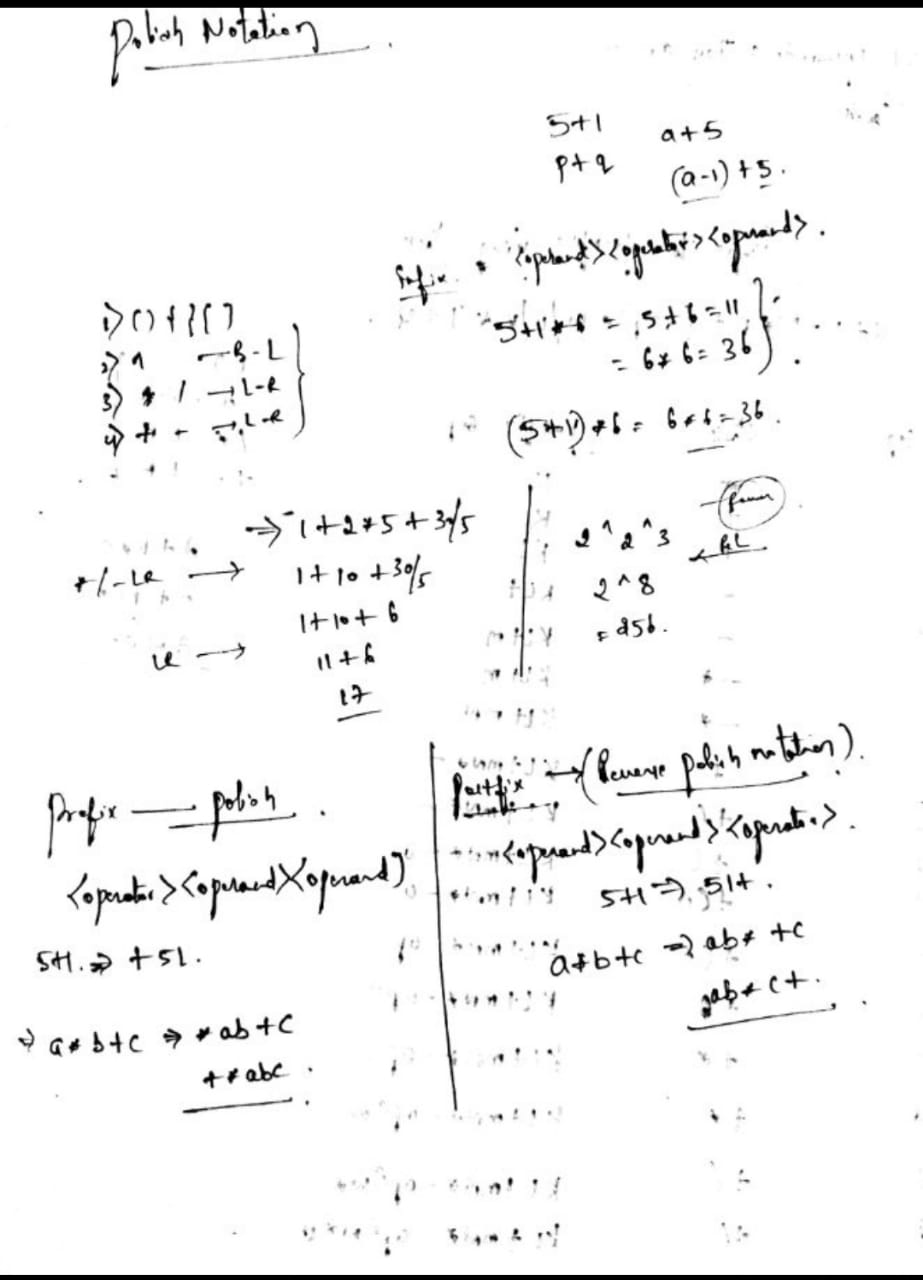 Polish Notation
5+1 a+5
p+q (a-1)+5.
Infix <operand><operator><operand>.
5+1*6 = 5+6=11
= 6*6=36
(5+1)*6 = 6*6=36.
1) () { } [ ]
2) ^ → R-L
3) * / → L-R
4) + - → L-R
⇒ 1+2*5+30/5
*/-LR → 1+10+30/5
1+10+6
LR → 11+6
17
2^2^3 ← RL
2^8
= 256.
Prefix — polish.
<operator><operand><operand>
5+1. ⇒ +51.
⇒ a*b+c ⇒ *ab+c
+*abc.
Postfix → (Reverse polish notation).
<operand><operand><operator>.
5+1 ⇒ 51+.
a*b+c ⇒ ab*+c
ab*c+.